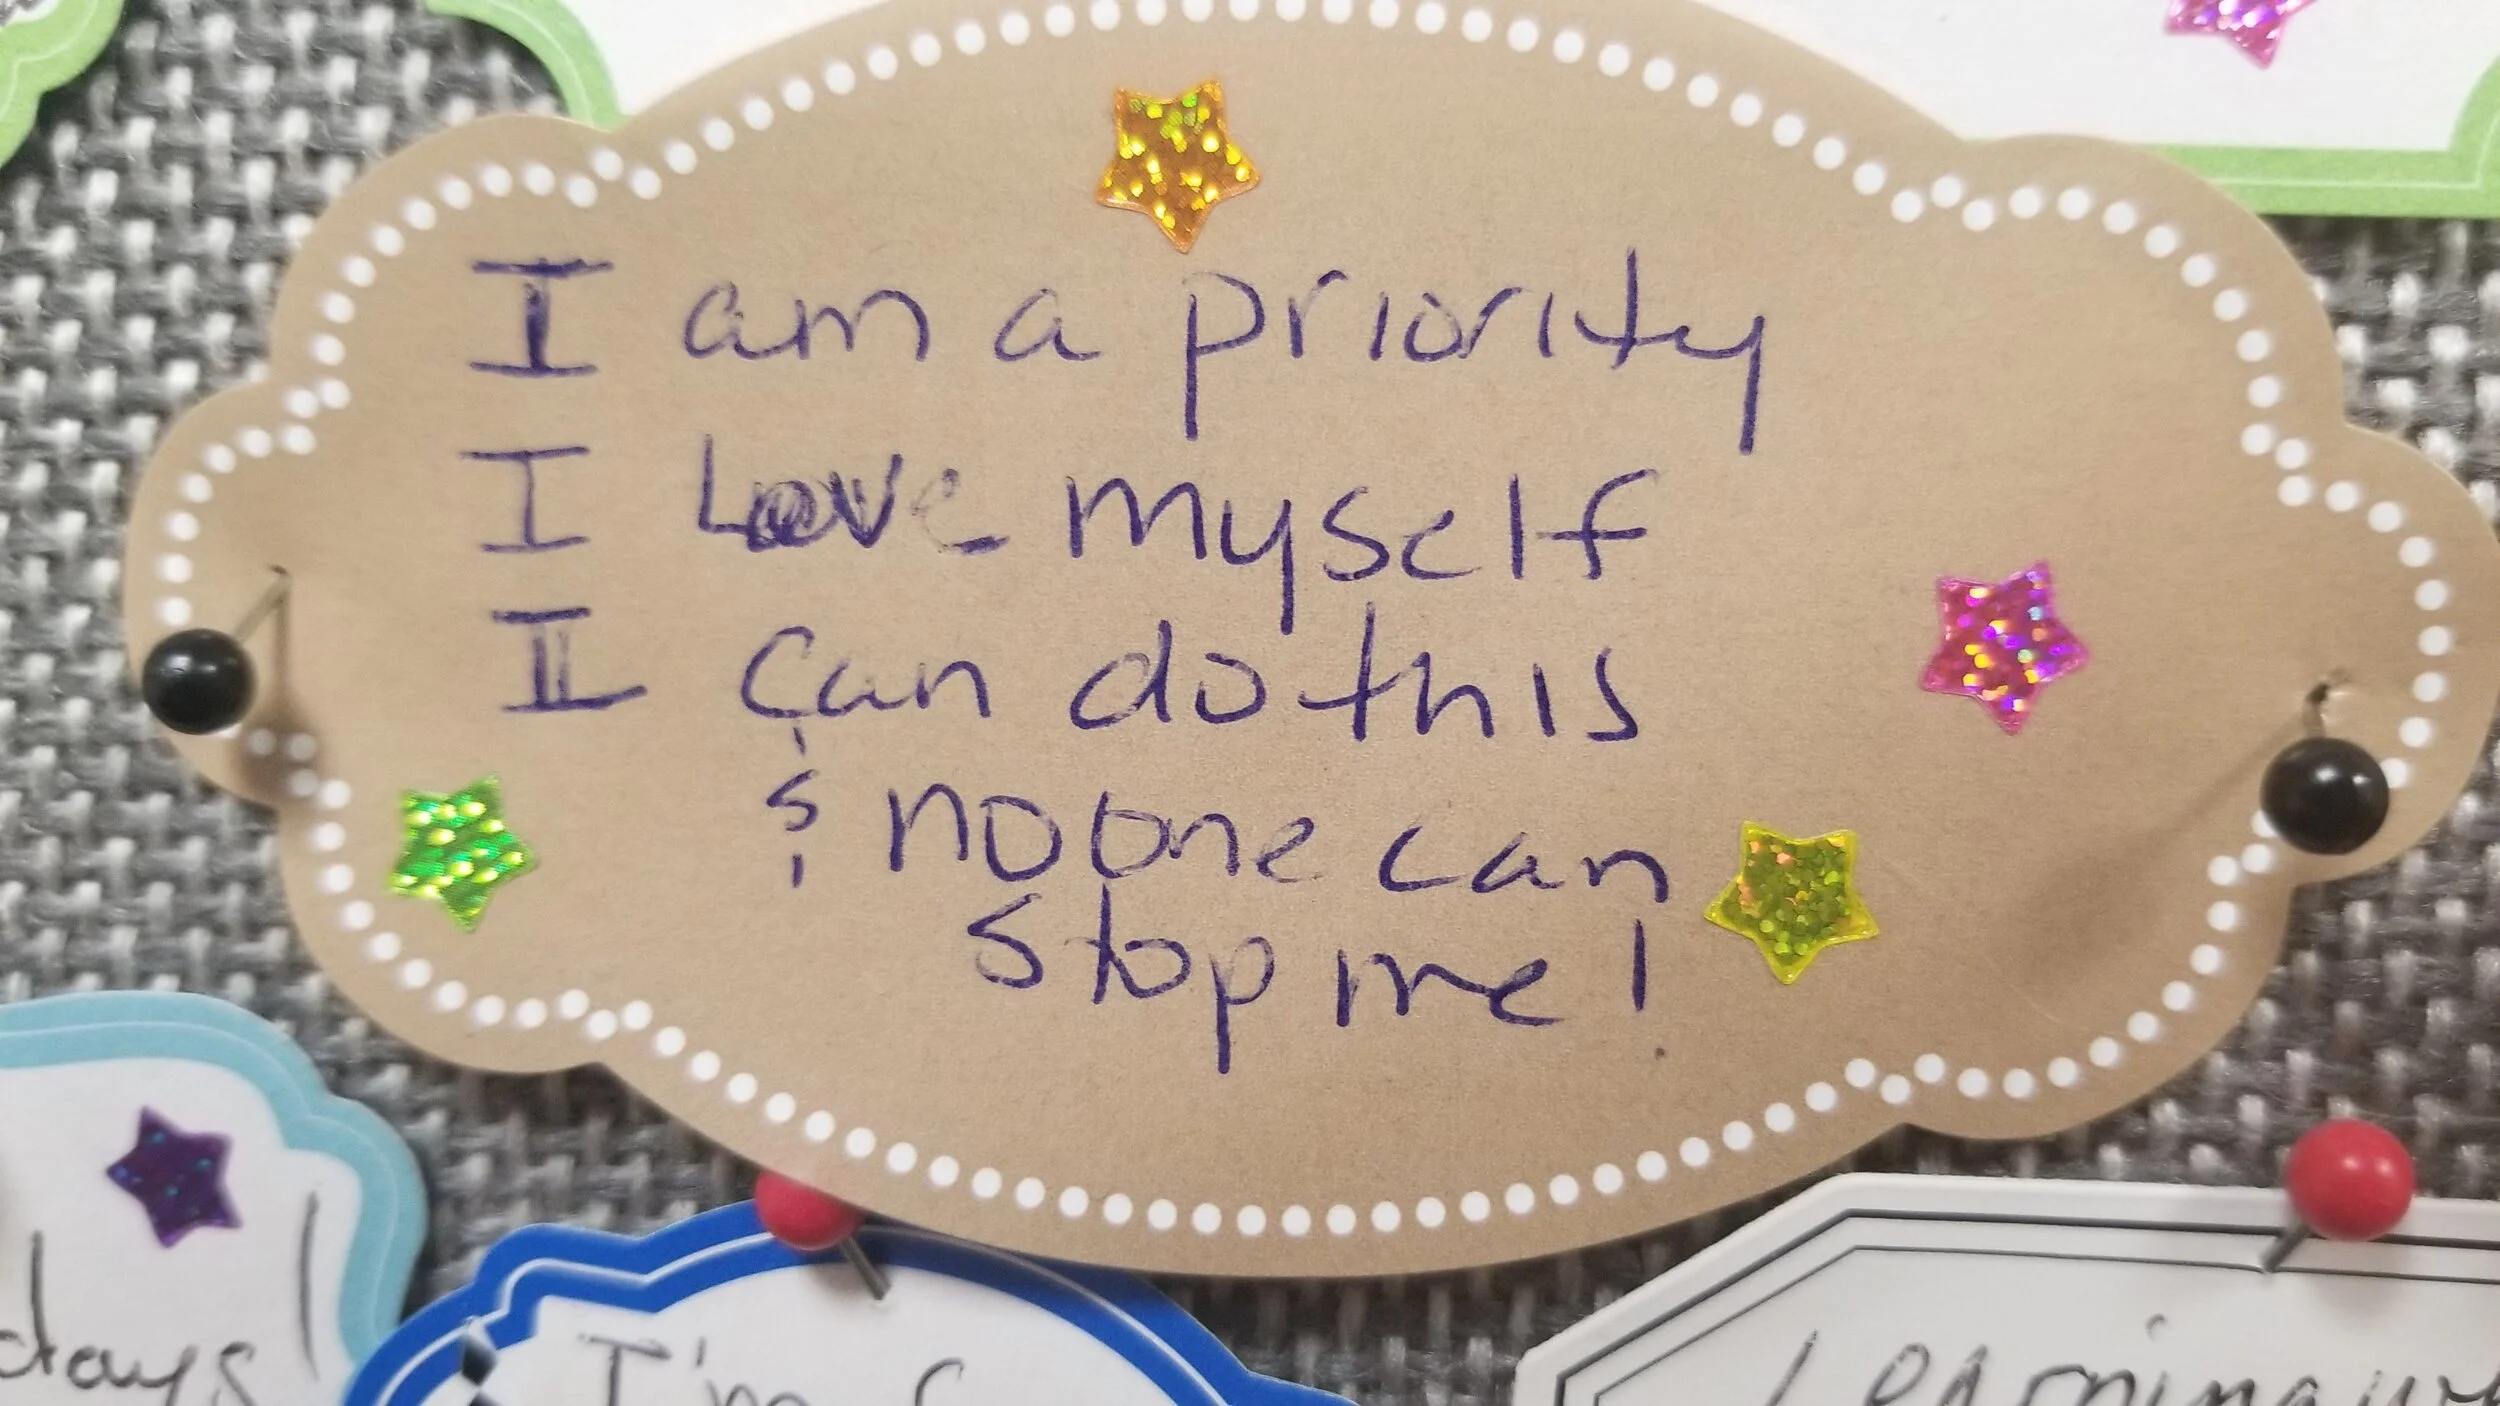 I am a priority
I Love myself
I can do this
& no one can
stop me!
days!
I'm
Learning